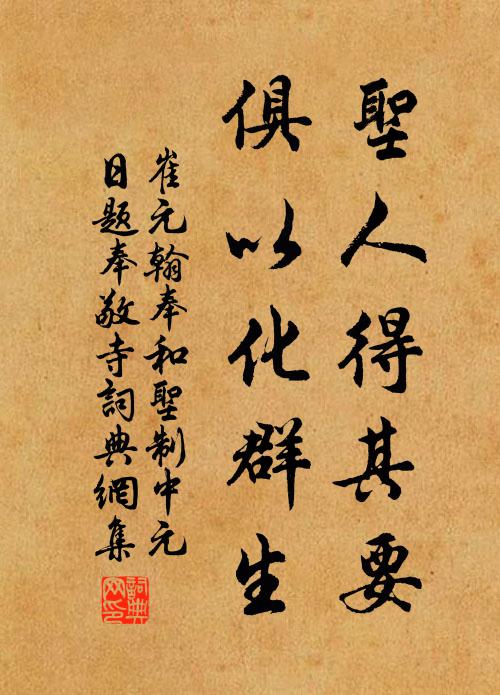 聖人得其要
俱以化群生
崔元翰奉和聖制中元
日題奉敬寺詞典網集
詞典
网印